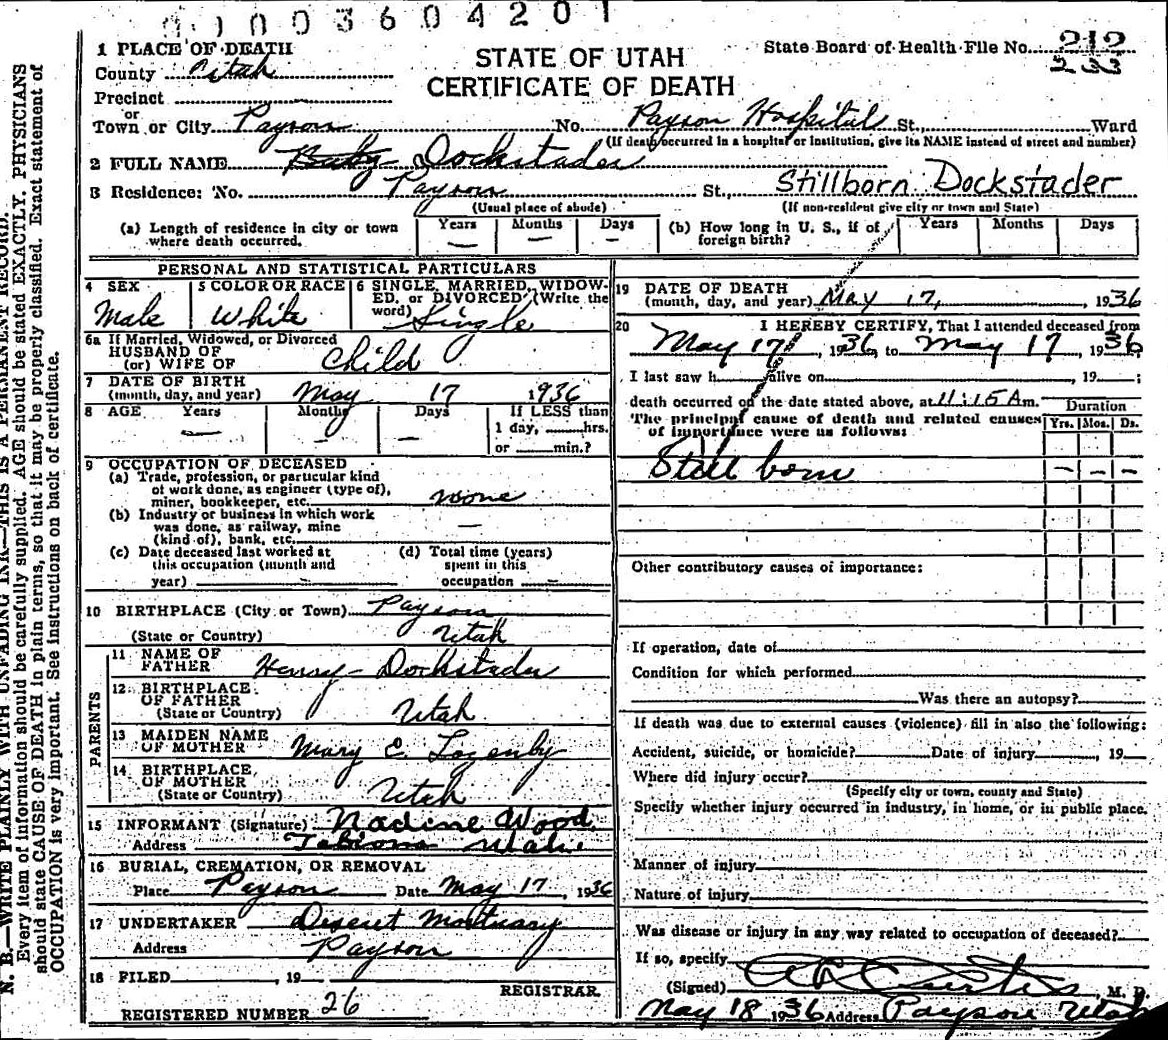 0 0 0 3 6 0 4 2 0 1
1 PLACE OF DEATH
County Utah
STATE OF UTAH
CERTIFICATE OF DEATH
State Board of Health File No. 212
233
Precinct
or
Town or City Payson No. Payson Hospital St., Ward
(If death occurred in a hospital or institution, give its NAME instead of street and number)
2 FULL NAME Baby Dockstader
3 Residence: No. Payson St., Stillborn Dockstader
(Usual place of abode) (If non-resident give city or town and State)
(a) Length of residence in city or town where death occurred. Years — Months — Days —
(b) How long in U. S., if of foreign birth? Years Months Days
PERSONAL AND STATISTICAL PARTICULARS
4 SEX Male
5 COLOR OR RACE White
6 SINGLE, MARRIED, WIDOWED, or DIVORCED (Write the word) Single
6a If Married, Widowed, or Divorced
HUSBAND OF
(or) WIFE OF Child
7 DATE OF BIRTH
(month, day, and year) May 17 1936
8 AGE Years — Months — Days — If LESS than
1 day, hrs.
or min.?
9 OCCUPATION OF DECEASED
(a) Trade, profession, or particular kind
of work done, as engineer (type of),
miner, bookkeeper, etc. none
(b) Industry or business in which work
was done, as railway, mine
(kind of), bank, etc. —
(c) Date deceased last worked at
this occupation (month and
year)
(d) Total time (years)
spent in this
occupation —
10 BIRTHPLACE (City or Town) Payson
(State or Country) Utah
PARENTS
11 NAME OF
FATHER Henry Dockstader
12 BIRTHPLACE
OF FATHER
(State or Country) Utah
13 MAIDEN NAME
OF MOTHER Mary E. Lazenby
14 BIRTHPLACE
OF MOTHER
(State or Country) Utah
15 INFORMANT (Signature) Nadine Wood
Address Tabiona Utah
16 BURIAL, CREMATION, OR REMOVAL
Place Payson Date May 17, 1936
17 UNDERTAKER Deseret Mortuary
Address Payson
18 FILED , 19
REGISTRAR
REGISTERED NUMBER 26
19 DATE OF DEATH
(month, day, and year) May 17, , 1936
20 I HEREBY CERTIFY, That I attended deceased from
May 17, 1936, to May 17, 1936
I last saw h alive on , 19 ;
death occurred on the date stated above, at 11:15 A m.
The principal cause of death and related causes
of importance were as follows:
Duration
Yrs. Mos. Ds.
Still born — — —
Other contributory causes of importance:
If operation, date of
Condition for which performed
Was there an autopsy?
If death was due to external causes (violence) fill in also the following:
Accident, suicide, or homicide? Date of injury , 19
Where did injury occur?
(Specify city or town, county and State)
Specify whether injury occurred in industry, in home, or in public place.
Manner of injury
Nature of injury
Was disease or injury in any way related to occupation of deceased?
If so, specify
(Signed) Curtis, M. D.
May 18 1936 Address Payson Utah
N. B.—WRITE PLAINLY WITH UNFADING INK—THIS IS A PERMANENT RECORD.
Every item of information should be carefully supplied. AGE should be stated EXACTLY. PHYSICIANS
should state CAUSE OF DEATH in plain terms, so that it may be properly classified. Exact statement of
OCCUPATION is very important. See instructions on back of certificate.